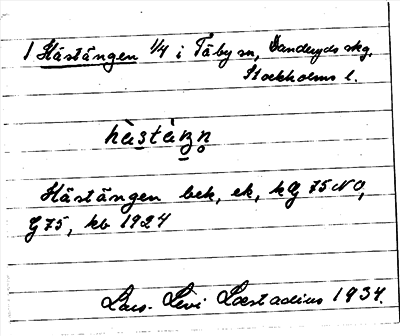 1 Hästängen 1/4 i Täby sn, Danderyds skg,
Stockholms l.
hästäŋn
Hästängen bek, ek, kg 75 NO,
G 75, kb 1924
Lars-Levi Læstadius 1934.